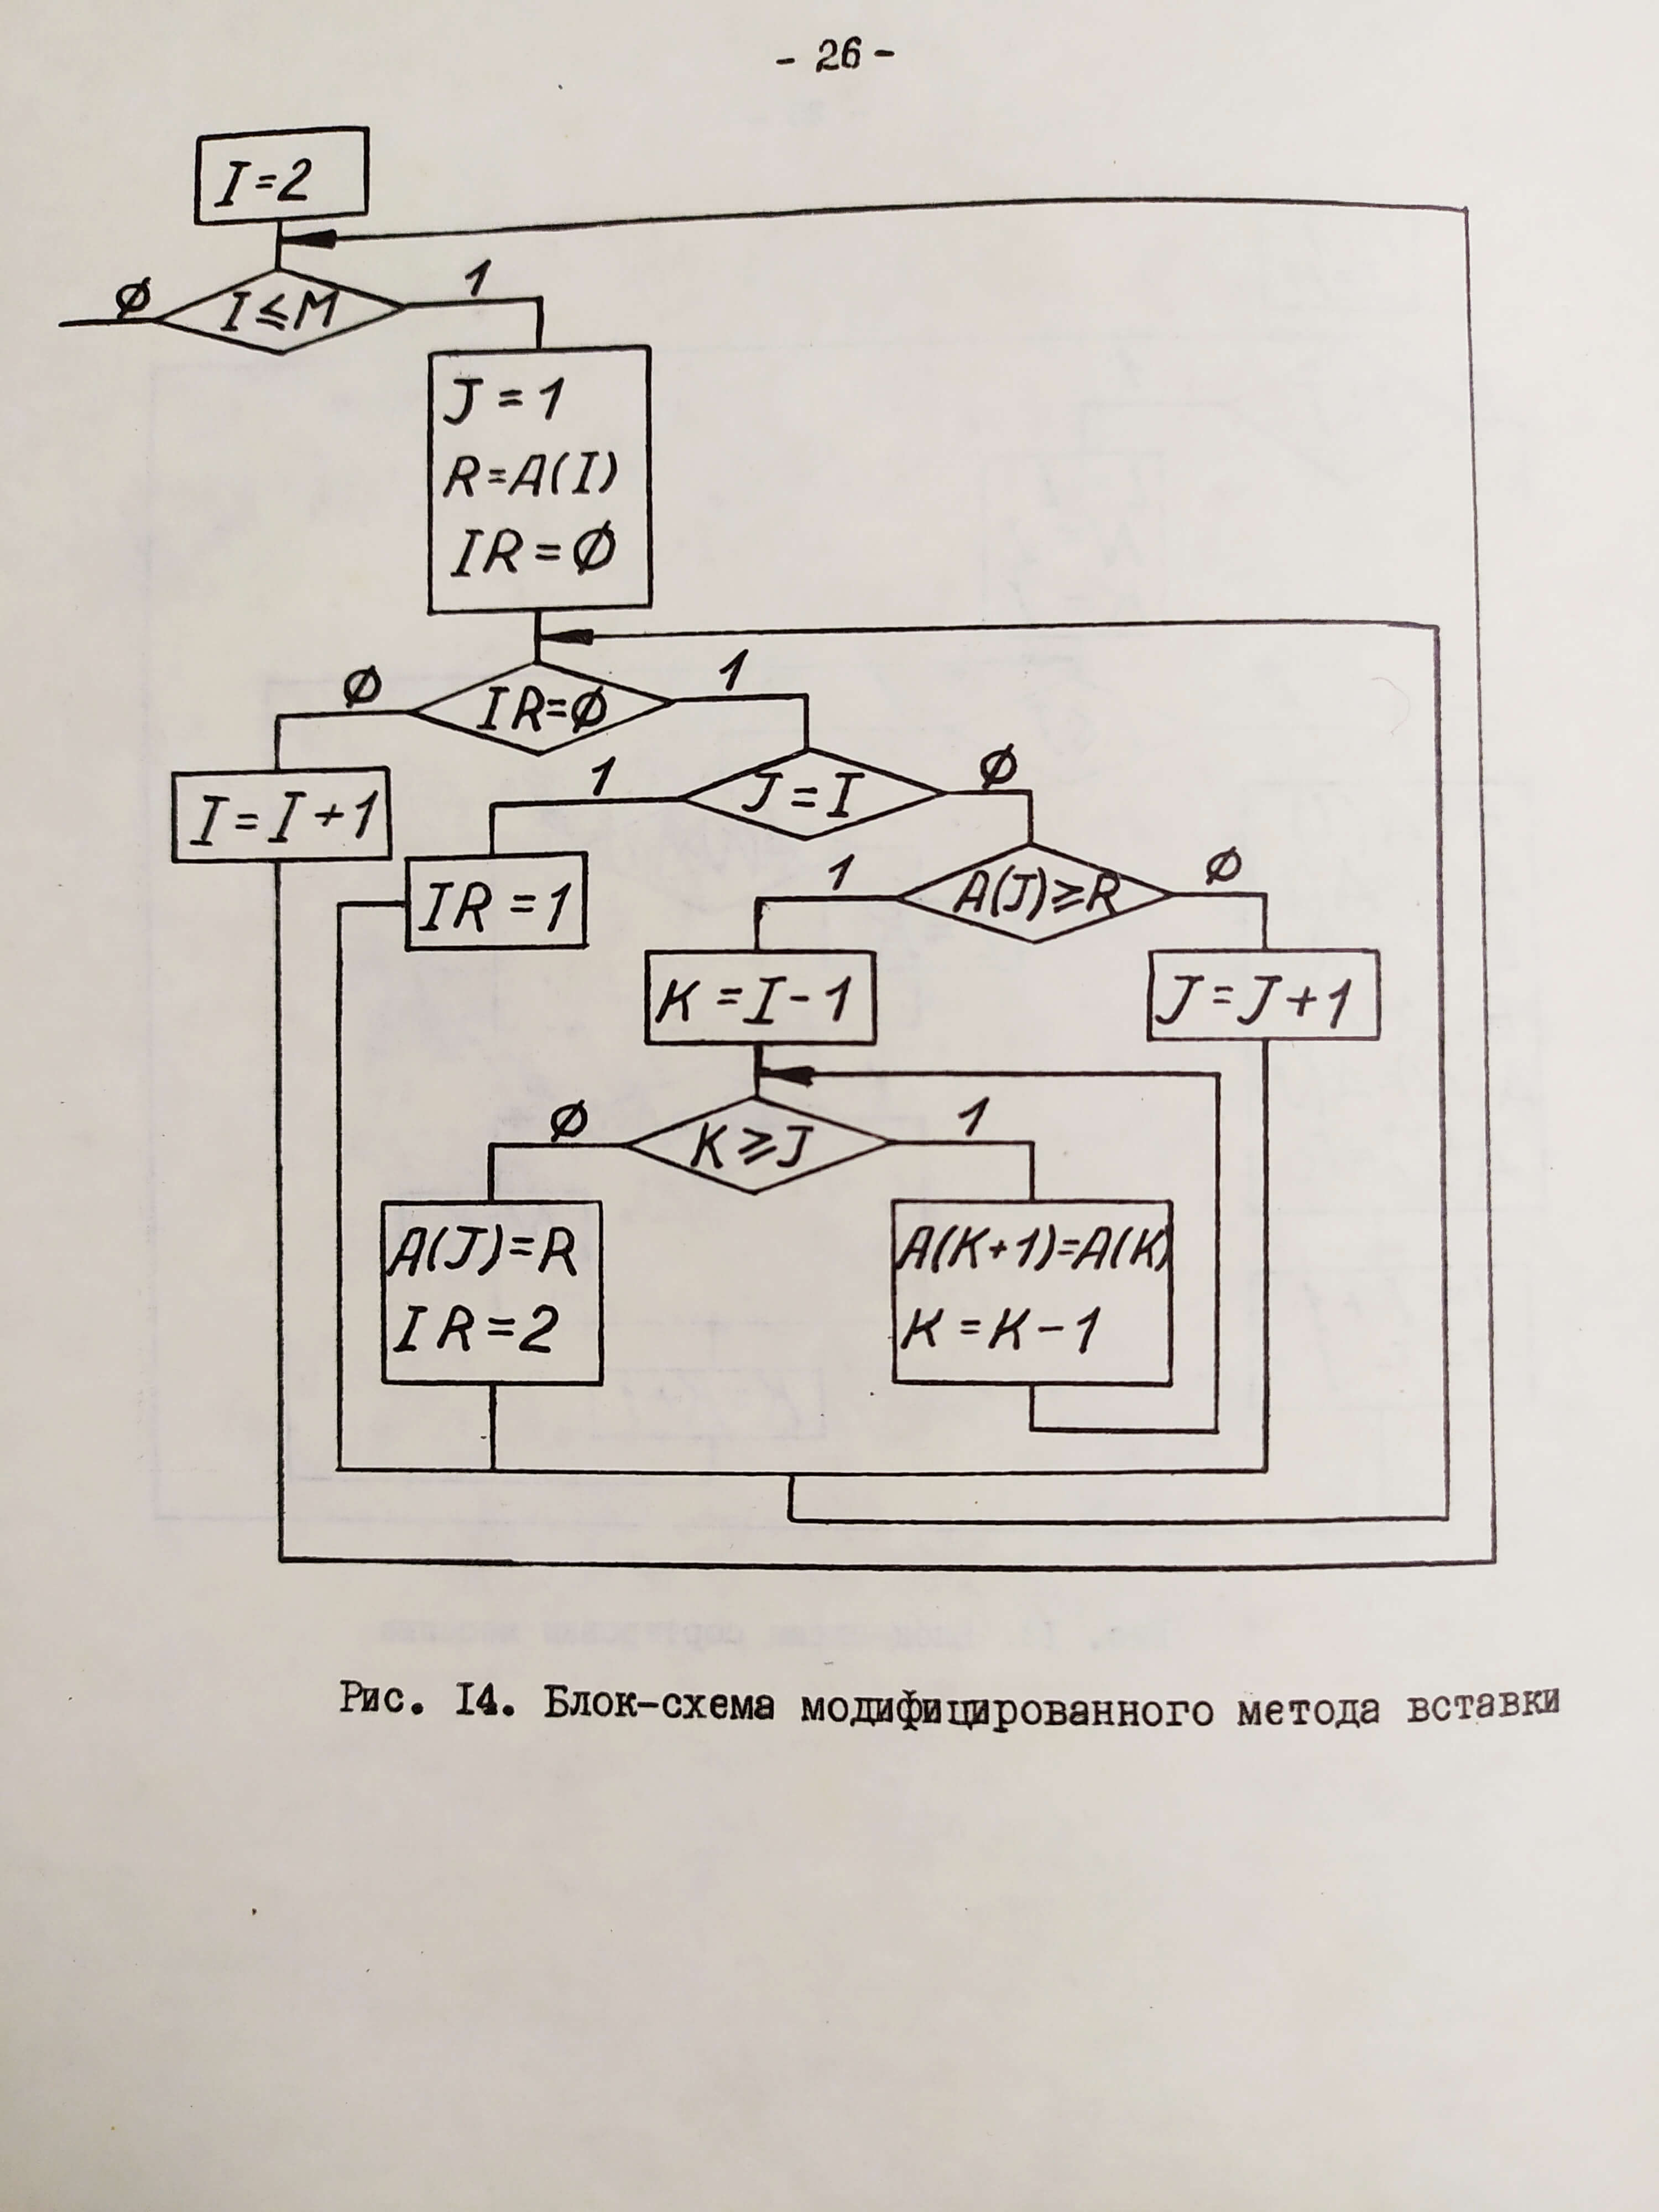 - 26 -
I=2
Ø
I≤M
1
J=1
R=A(I)
IR=Ø
Ø
IR=Ø
1
1
J=I
Ø
I=I+1
IR=1
1
A(J)≥R
Ø
K=I-1
J=J+1
Ø
K≥J
1
A(J)=R
IR=2
A(K+1)=A(K)
K=K-1
Рис. I4. Блок-схема модифицированного метода вставки